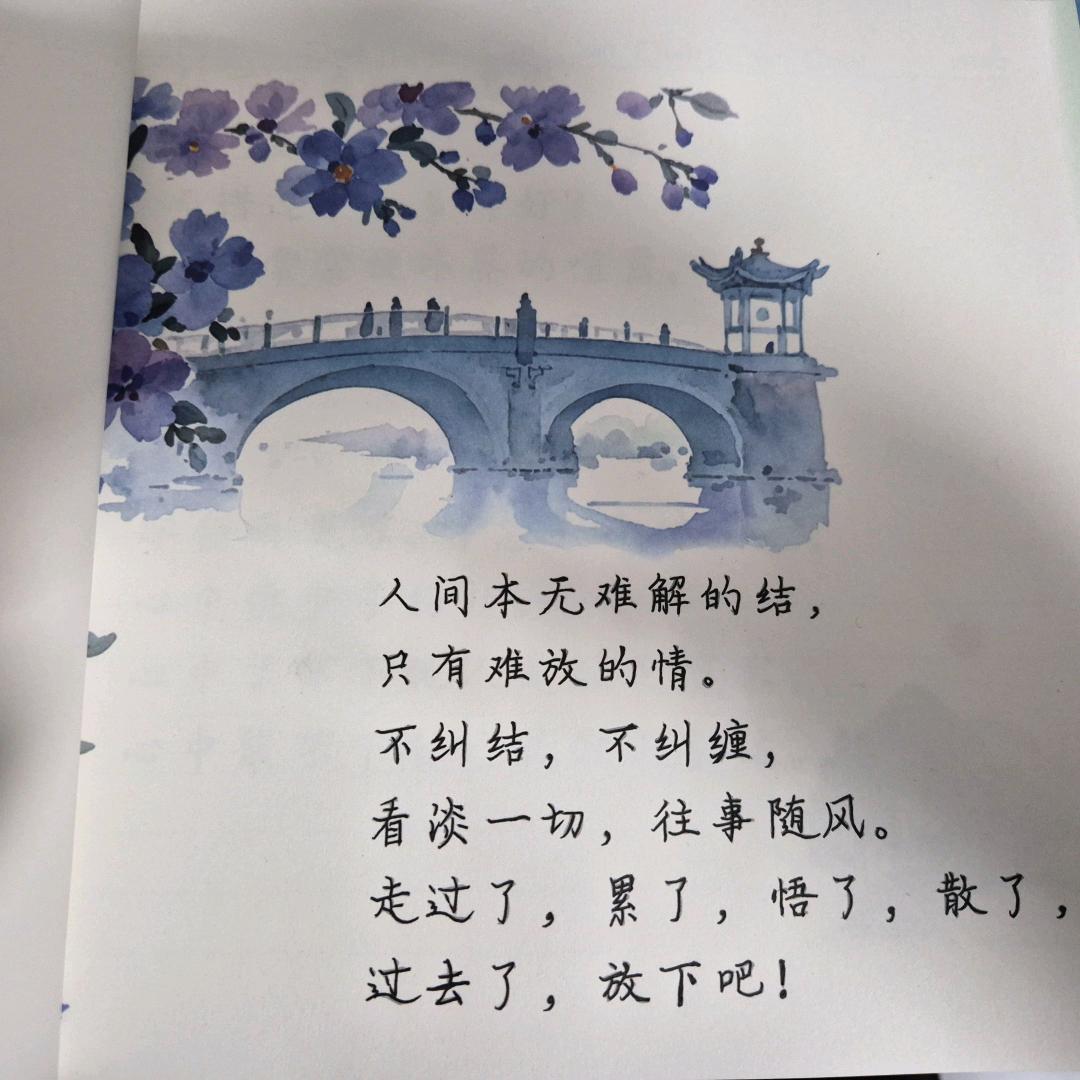 人间本无难解的结，
只有难放的情。
不纠结，不纠缠，
看淡一切，往事随风。
走过了，累了，悟了，散了，
过去了，放下吧！